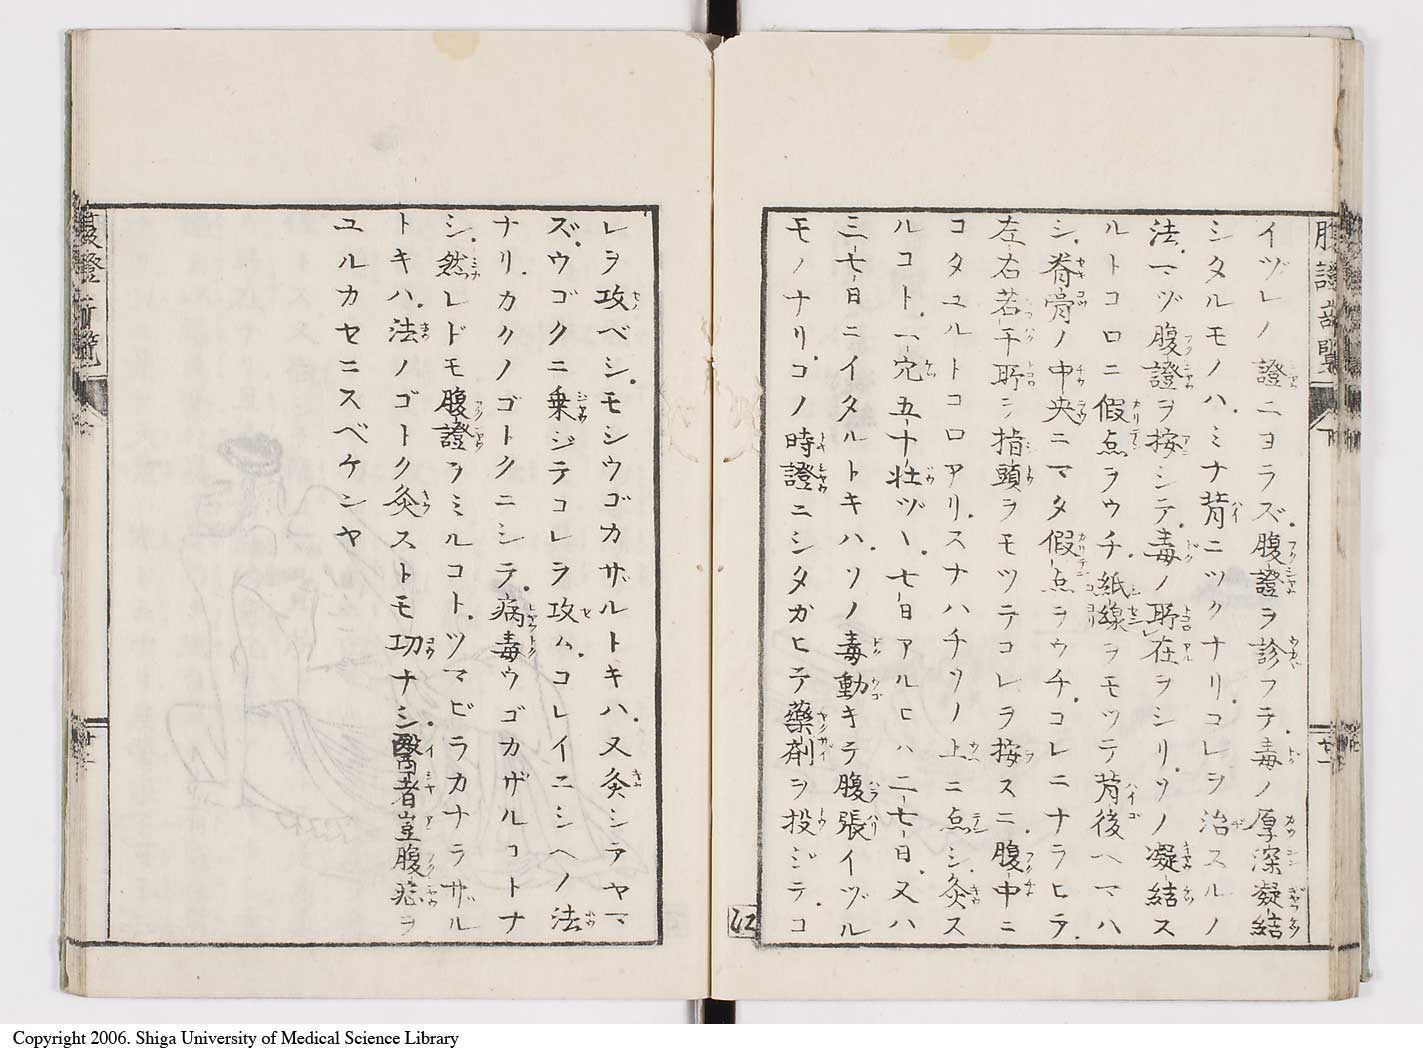 イヅレノ證ニヨラズ、腹證ヲ診フテ、毒ノ厚深凝結
シタルモノハ、ミナ背ニツクナリ、コレヲ治スルノ
法、マヅ腹證ヲ按シテ、毒ノ所在ヲシリ、ソノ凝結ス
ルトコロニ假点ヲウチ、紙線ヲモツテ背後ヘマハ
シ、脊骨ノ中央ニマタ假点ヲウチ、コレニナラヒテ、
左右若干所ヲ指頭ヲモツテコレヲ按スニ、腹中ニ
コタユルトコロアリ、スナハチソノ上ニ点シ、灸ス
ルコト、一穴五十壮ヅヽ、七日アルヒハ二七日、又ハ
三七日ニイタルトキハ、ソノ毒動キテ腹張イヅル
モノナリ、コノ時證ニシタガヒテ藥剤ヲ投ジテ、コ
レヲ攻ベシ、モシウゴカザルトキハ、又灸シテヤマ
ズ、ウゴクニ乗ジテコレヲ攻ム、コレイニシヘノ法
ナリ、カクノゴトクニシテ、病毒ウゴカザルコトナ
シ、然レドモ腹證ヲミルコト、ツマビラカナラザル
トキハ、法ノゴトク灸ストモ功ナシ、醫者豈腹候ヲ
ユルカセニスベケンヤ
腹證竒覽
下
廿一
江